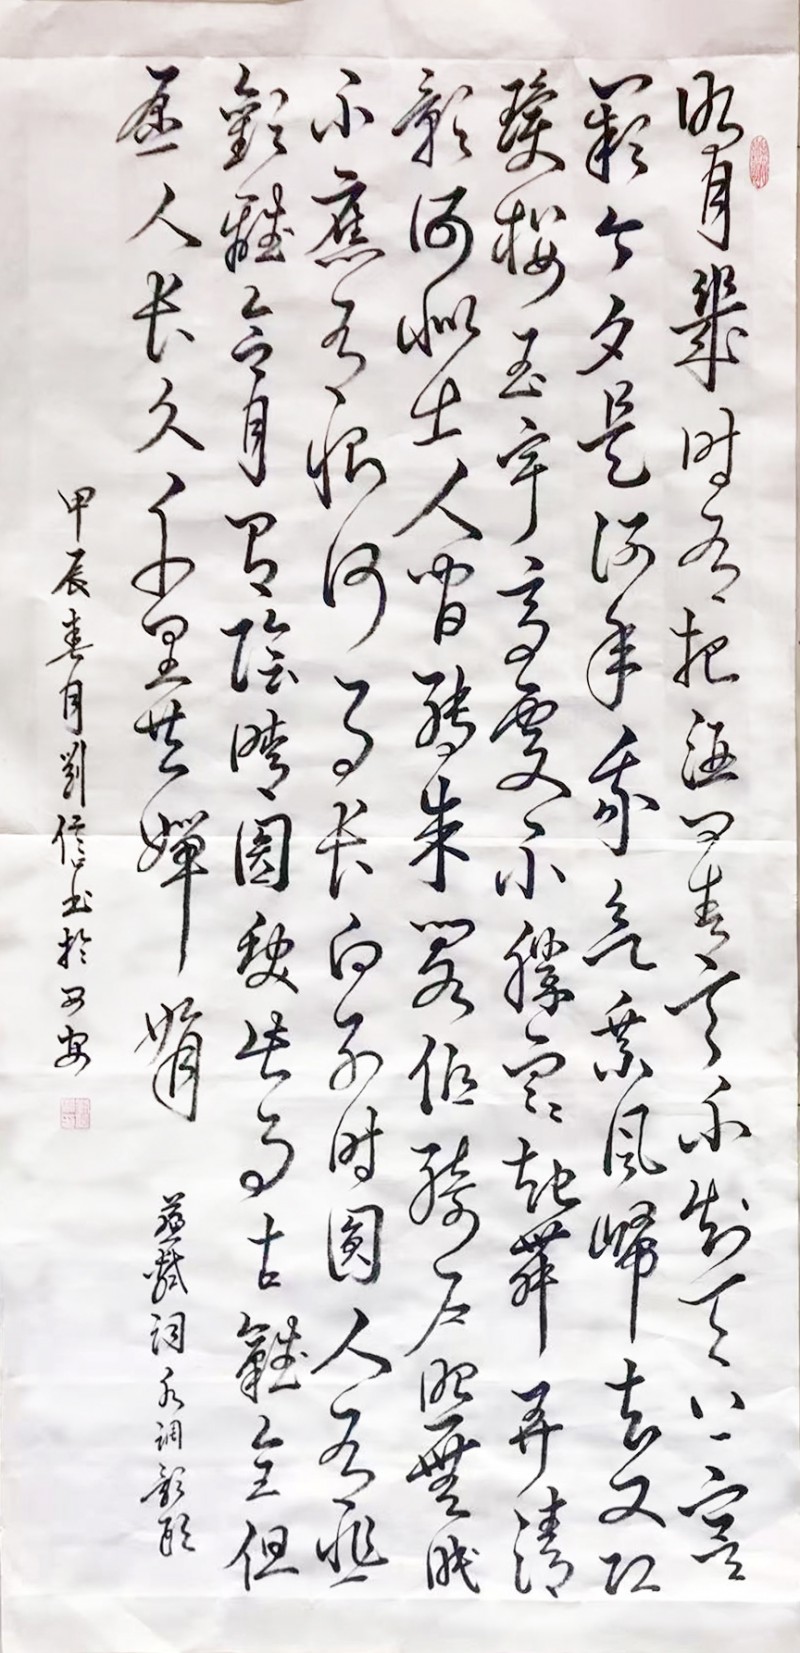 明月幾时有把酒问青天不知天上宫
闕今夕是何年我欲乘風歸去又恐
瓊楼玉宇高處不勝寒起舞弄清
影何似在人间轉朱阁低綺户照無眠
不應有恨何事长向别时圆人有悲
歡離合月有陰晴圆缺此事古難全但
愿人长久千里共嬋娟
苏軾词水调歌頭
甲辰春月劉信书於西安